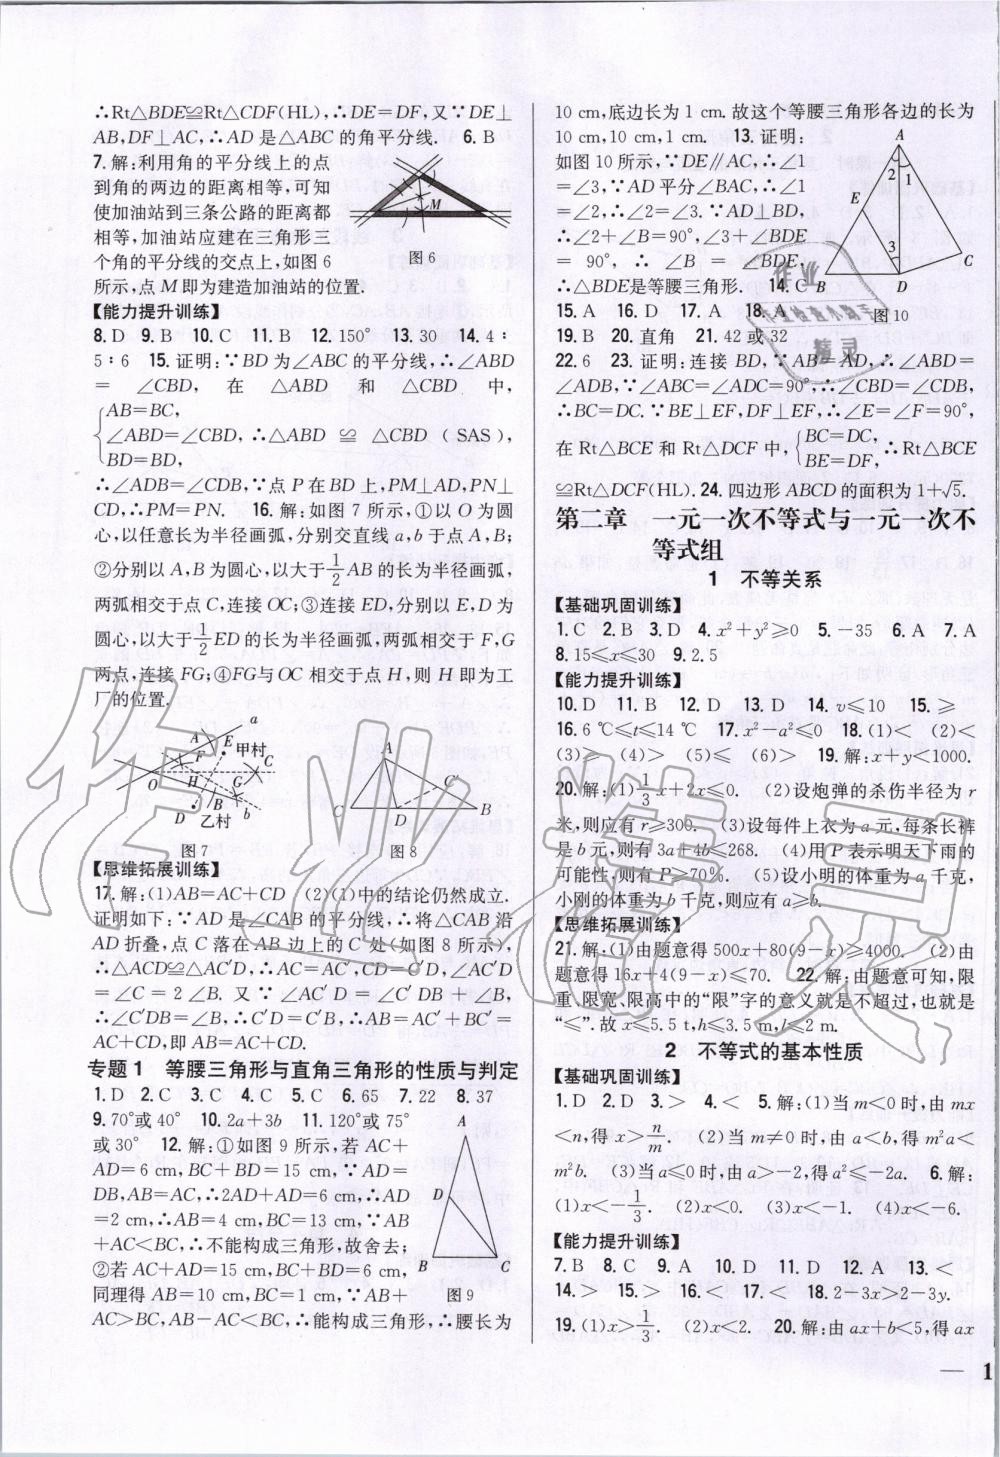 ∴Rt△BDE≌Rt△CDF(HL),∴DE=DF,又∵DE⊥
AB,DF⊥AC,∴AD是△ABC的角平分线. 6. B
7. 解:利用角的平分线上的点
到角的两边的距离相等,可知
使加油站到三条公路的距离都
相等,加油站应建在三角形三
个角的平分线的交点上,如图6
所示,点M即为建造加油站的位置.
M
图6
【能力提升训练】
8. D 9. B 10. C 11. B 12. 150° 13. 30 14. 4∶
5∶6 15. 证明:∵BD为∠ABC的平分线,∴∠ABD
= ∠CBD, 在 △ABD 和 △CBD 中,
AB=BC,
∠ABD=∠CBD, ∴△ABD ≌ △CBD (SAS),
BD=BD,
∴∠ADB=∠CDB,∵点P在BD上,PM⊥AD,PN⊥
CD,∴PM=PN. 16. 解:如图7所示,①以O为圆
心,以任意长为半径画弧,分别交直线a,b于点A,B;
②分别以A,B为圆心,以大于1/2AB的长为半径画弧,
两弧相交于点C,连接OC;③连接ED,分别以E,D为
圆心,以大于1/2ED的长为半径画弧,两弧相交于F,G
两点,连接FG;④FG与OC相交于点H,则H即为工
厂的位置.
a
A F E 甲村
C
O H G
I B b
D 乙村
图7
A
C′
C D B
图8
【思维拓展训练】
17. 解:(1)AB=AC+CD (2)(1)中的结论仍然成立.
证明如下:∵AD是∠CAB的平分线,∴将△CAB沿
AD折叠,点C落在AB边上的C′处(如图8所示),
∴△ACD≌△AC′D,∴AC=AC′,CD=C′D,∠AC′D
=∠C=2∠B. 又∵∠AC′D=∠C′DB+∠B,
∴∠C′DB=∠B,∴C′D=C′B,∴AB=AC′+BC′=
AC+CD,即AB=AC+CD.
专题1 等腰三角形与直角三角形的性质与判定
1. D 2. C 3. C 4. C 5. C 6. 65 7. 22 8. 37
9. 70°或40° 10. 2a+3b 11. 120°或75°
或30° 12. 解:①如图9所示,若AC+
AD=6 cm,BC+BD=15 cm,∵AD=
DB,AB=AC,∴2AD+AD=6 cm,∴AD
=2 cm,∴AB=4 cm,BC=13 cm,∵AB
+AC<BC,∴不能构成三角形,故舍去;
②若AC+AD=15 cm,BC+BD=6 cm,
同理得AB=10 cm,BC=1 cm,∵AB+
AC>BC,AB-AC<BC,∴能构成三角形,∴腰长为
A
D
B C
图9
10 cm,底边长为1 cm. 故这个等腰三角形各边的长为
10 cm,10 cm,1 cm. 13. 证明:
如图10所示,∵DE∥AC,∴∠1
=∠3,∵AD平分∠BAC,∴∠1
=∠2,∴∠2=∠3. ∵AD⊥BD,
∴∠2+∠B=90°,∠3+∠BDE
= 90°, ∴ ∠B = ∠BDE,
∴△BDE是等腰三角形. 14. C
A
2 1
E
3
B D C
图10
15. A 16. D 17. A 18. A
19. B 20. 直角 21. 42或32
22. 6 23. 证明:连接BD,∵AB=AD,∴∠ABD=
∠ADB,∵∠ABC=∠ADC=90°,∴∠CBD=∠CDB,
∴BC=DC. ∵BE⊥EF,DF⊥EF,∴∠E=∠F=90°,
在Rt△BCE和Rt△DCF中,{BC=DC, BE=DF, ∴Rt△BCE
≌Rt△DCF(HL). 24. 四边形ABCD的面积为1+√5.
第二章 一元一次不等式与一元一次不
等式组
1 不等关系
【基础巩固训练】
1. C 2. B 3. D 4. x²+y²≥0 5. -35 6. A 7. A
8. 15≤x≤30 9. 2.5
【能力提升训练】
10. D 11. B 12. D 13. D 14. v≤10 15. ≥
16. 6 ℃≤t≤14 ℃ 17. x²-a²≤0 18. (1)< (2)<
(3)≥ (4)> (5)≤ (6)> 19. 解:x+y<1000.
20. 解:(1)1/3x+2x≤0. (2)设炮弹的杀伤半径为r
米,则应有r≥300. (3)设每件上衣为a元,每条长裤
是b元,则有3a+4b≤268. (4)用P表示明天下雨的
可能性,则有P≥70%. (5)设小明的体重为a千克,
小刚的体重为b千克,则应有a≥b.
【思维拓展训练】
21. 解:(1)由题意得500x+80(9-x)≥4000. (2)由
题意得16x+4(9-x)≤70. 22. 解:由题意可知,限
重、限宽、限高中的“限”字的意义就是不超过,也就是
“≤”. 故x≤5.5 t,h≤3.5 m,l≤2 m.
2 不等式的基本性质
【基础巩固训练】
1. D 2. D 3. > 4. < 5. 解:(1)当m<0时,由mx
<n,得x>n/m. (2)当m≠0时,由a<b,得m²a<
m²b. (3)当a≤0时,由a>-2,得a²≤-2a. 6. 解:
(1)x<-1/3. (2)x<0. (3)x<-1. (4)x<-6.
【能力提升训练】
7. B 8. C 9. A 10. D 11. D 12. A 13. <
14. > 15. > 16. < 17. < 18. 2-3x>2-3y.
19. (1)x>1/3. (2)x<2. 20. 解:由ax+b<5,得ax
— 1
作业
精灵
作业精灵